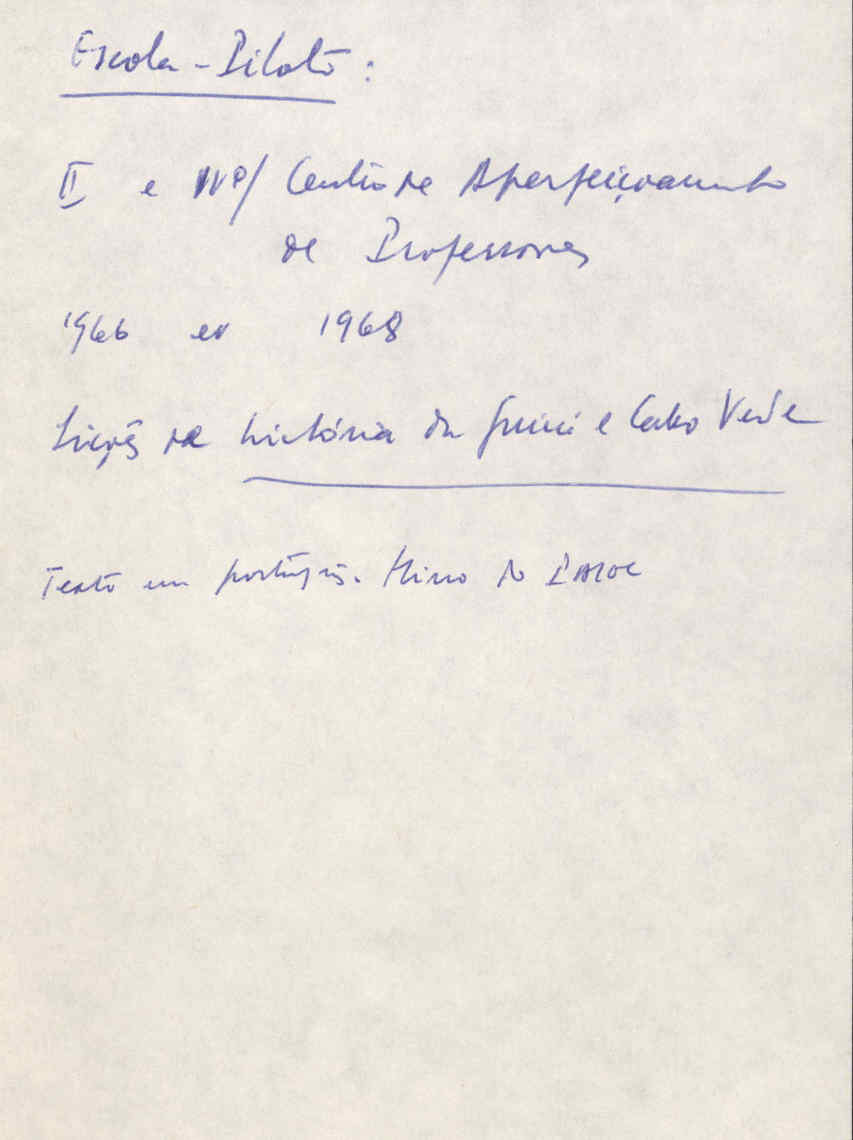 Escola-Piloto:
II e IVº/ Centro de Aperfeiçoamento
de Professores
1966 e 1968
Lições de história da Guiné e Cabo Verde
Texto em português. Hino do PAIGC